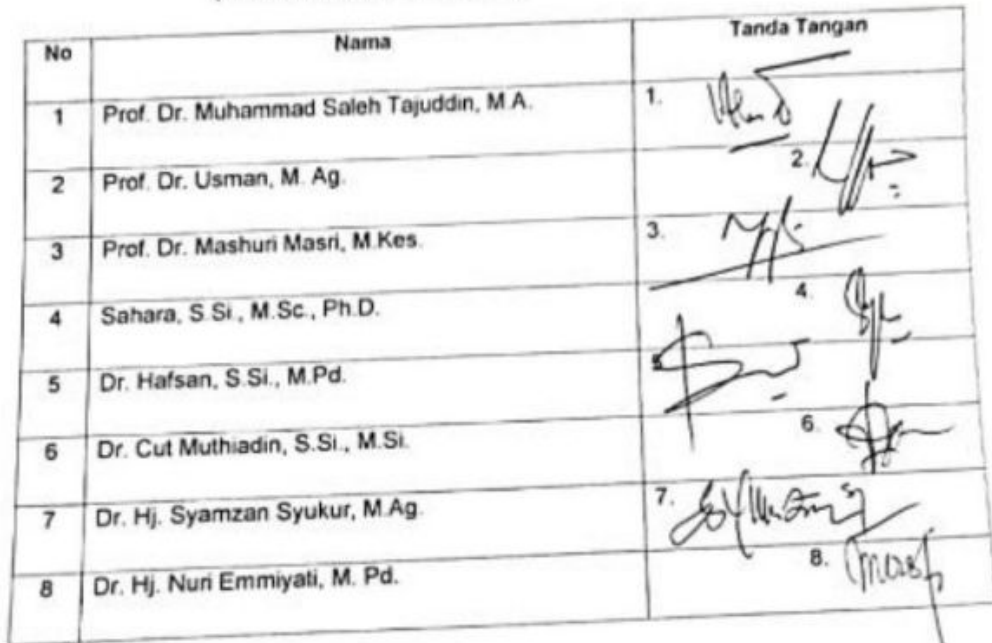 No Nama Tanda Tangan
1 Prof. Dr. Muhammad Saleh Tajuddin, M.A. 1.
2 Prof. Dr. Usman, M. Ag. 2.
3 Prof. Dr. Mashuri Masri, M.Kes. 3.
4 Sahara, S.Si., M.Sc., Ph.D. 4.
5 Dr. Hafsan, S.Si., M.Pd.
6 Dr. Cut Muthiadin, S.Si., M.Si. 6.
7 Dr. Hj. Syamzan Syukur, M.Ag. 7.
8 Dr. Hj. Nuri Emmiyati, M. Pd. 8.